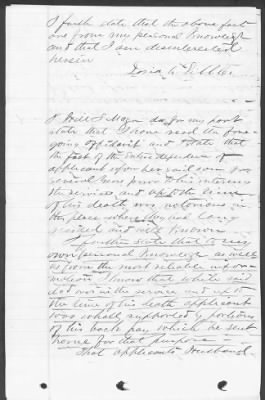 I further state that the above facts
are from my personal knowledge
and that I am disinterested
herein

I Will S Moga do for my part
state that I have read the fore-
going affidavit and state that
the fact of the entire dependence of
applicant upon her said son for
several years prior to his entering
the service, and up to the time
of his death was notorious in
the place where they had long
resided and well known.
I further state that to my
own personal knowledge as well
as from the most reliable infor-
mation I know that while said
dec'd was in the service and up to
the time of his death applicant
was wholly supported by portions
of his back pay which he sent
home for that purpose -
That applicants husband